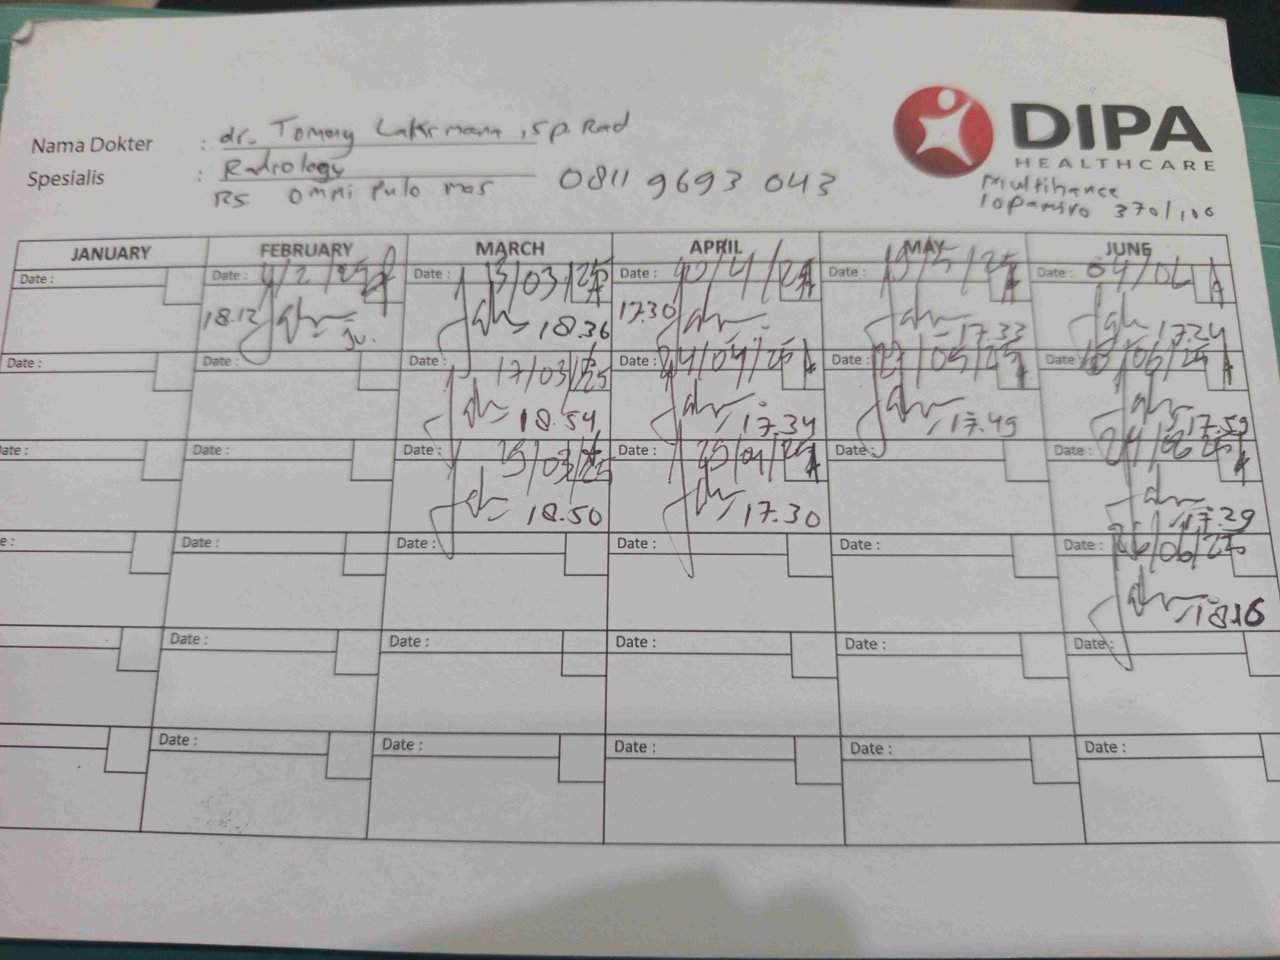 DIPA
HEALTHCARE
Nama Dokter : dr. Tommy Lakrmana, sp. Rad
Spesialis : Radiology
RS Omni Pulo mas 0811 9693 043
Multihance
Iopamiro 370/100
JANUARY FEBRUARY MARCH APRIL MAY JUNE
Date : Date : 4/2/25 Date : 13/03/25 Date : 10/4/25 Date : 19/5/25 Date : 04/06
18.12 18.36 17.30 17.33 17.24
Date : Date : Date : 17/03/25 Date : 24/04/25 Date : 27/05/25 Date : /06/25
18.54 17.34 17.49 17.59
Date : Date : Date : 25/03/25 Date : 25/04/25 Date : Date :
18.50 17.30 17.29
Date : Date : Date : Date : Date : 26/06/25
18.16
Date : Date : Date : Date : Date :
Date : Date : Date : Date : Date :